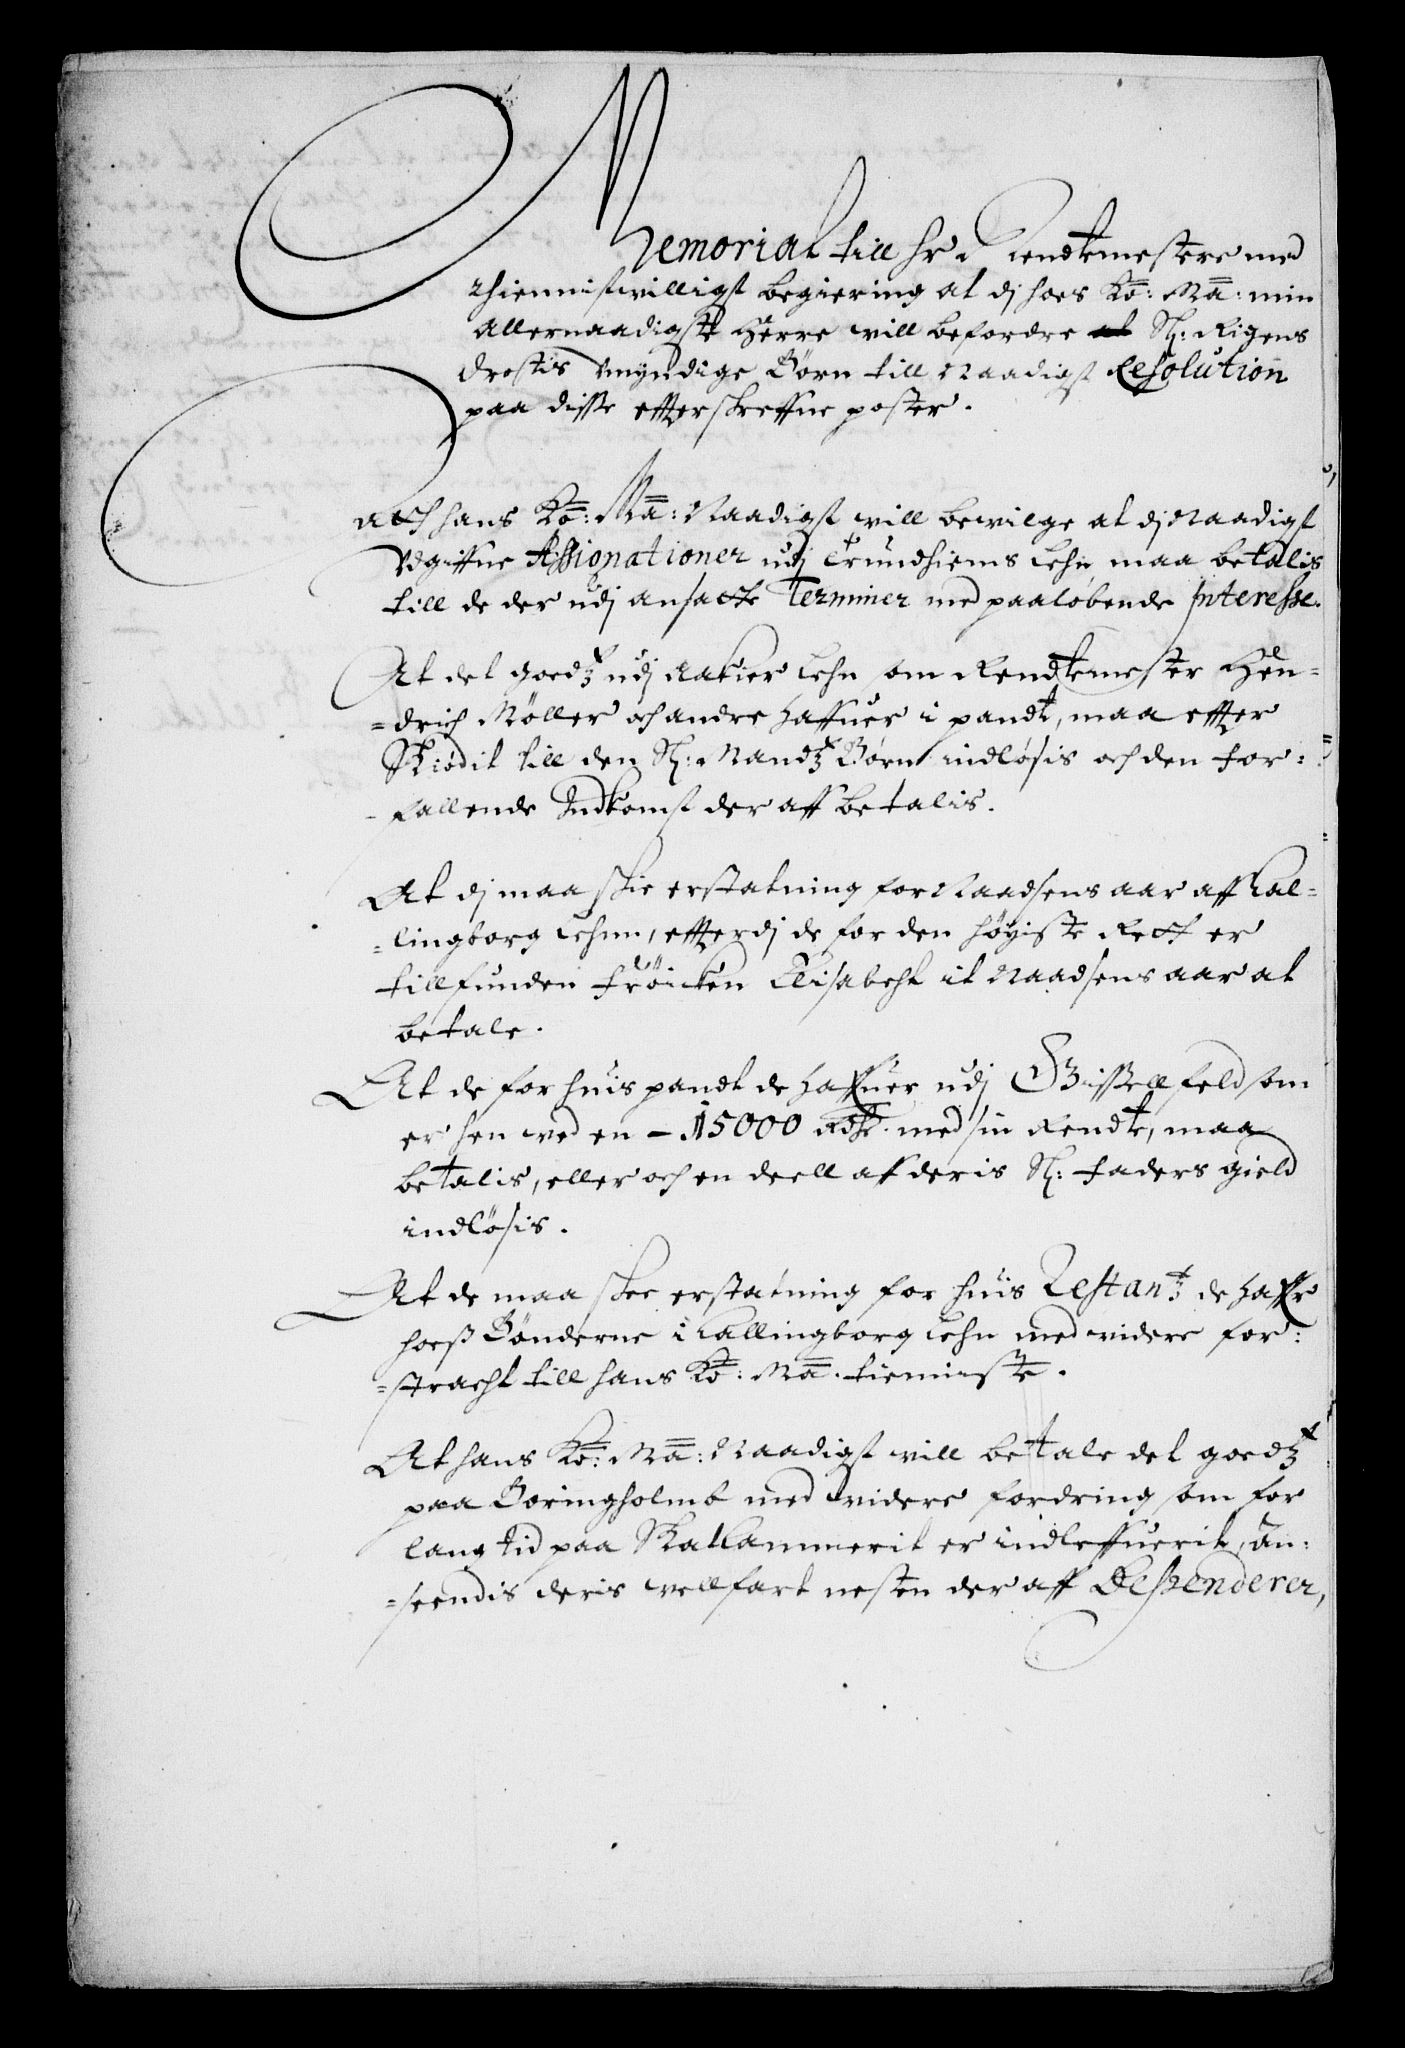 Memorial till Hr Rendtemestere med
thienistvilligst begiering at dj hoes Ko: Ma: min
Allernaadigste Herre vill befordre Sl: Rigens
Drostis Vmyndige Børn till Naadigst Resolution
paa disse efterskreffne poster.
hans Ko: Ma: Naadigst vill bevilge at dj Naadigst
Vdgiffne Assignationer udj Trundhiems Lehn maa betalis
till de der udj ansatte Terminer med paaløbende Interesse.
At det goedz udj Rakier Lehn som Rendtemester Hen-
=drich Møller och andre haffuer i pandt, maa efter
Skiødit till den Sl: Mandz Børn indløsis och den for-
fallende Indkomst der aff betalis.
At dj maa skie erstatning for Naadsens aar aff Kal-
=lingborg Lehnn, efterdj de for den høyiste Rett er
tillfunden Frøicken Elisabeht it Naadsens aar at
betale.
At de for huis pandt de haffuer udj Gissellfeld som
er hen ved en - 15000 Rdr. med sin Rendte, maa
betalis, eller och en deell af deris Sl: Faders gield
indløsis.
At de maa skee erstatning for huis Restantz de haffr
hoeß Bønderne i Kallingborg Lehn med videre for:
=stracht till hans Ko: Ma. tienniste.
At hans Ko: Ma: Naadigst vill betale det goedz
paa Boringholmb med videre fordring som for
lang tid paa Skatkammerit er indleffuerit, an:
=seendis deris velfart nesten der aff Despenderer,